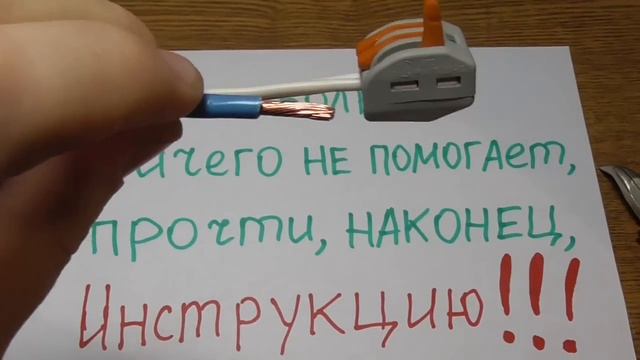 ничего НЕ ПОМОГАЕТ,
прочти, НАКОНЕЦ,
Инструкцию!!!